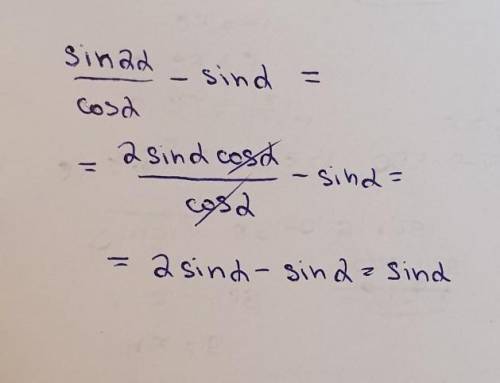 sin2α/cosα − sinα =
= 2sinα cosα/cosα − sinα =
= 2sinα − sinα = sinα